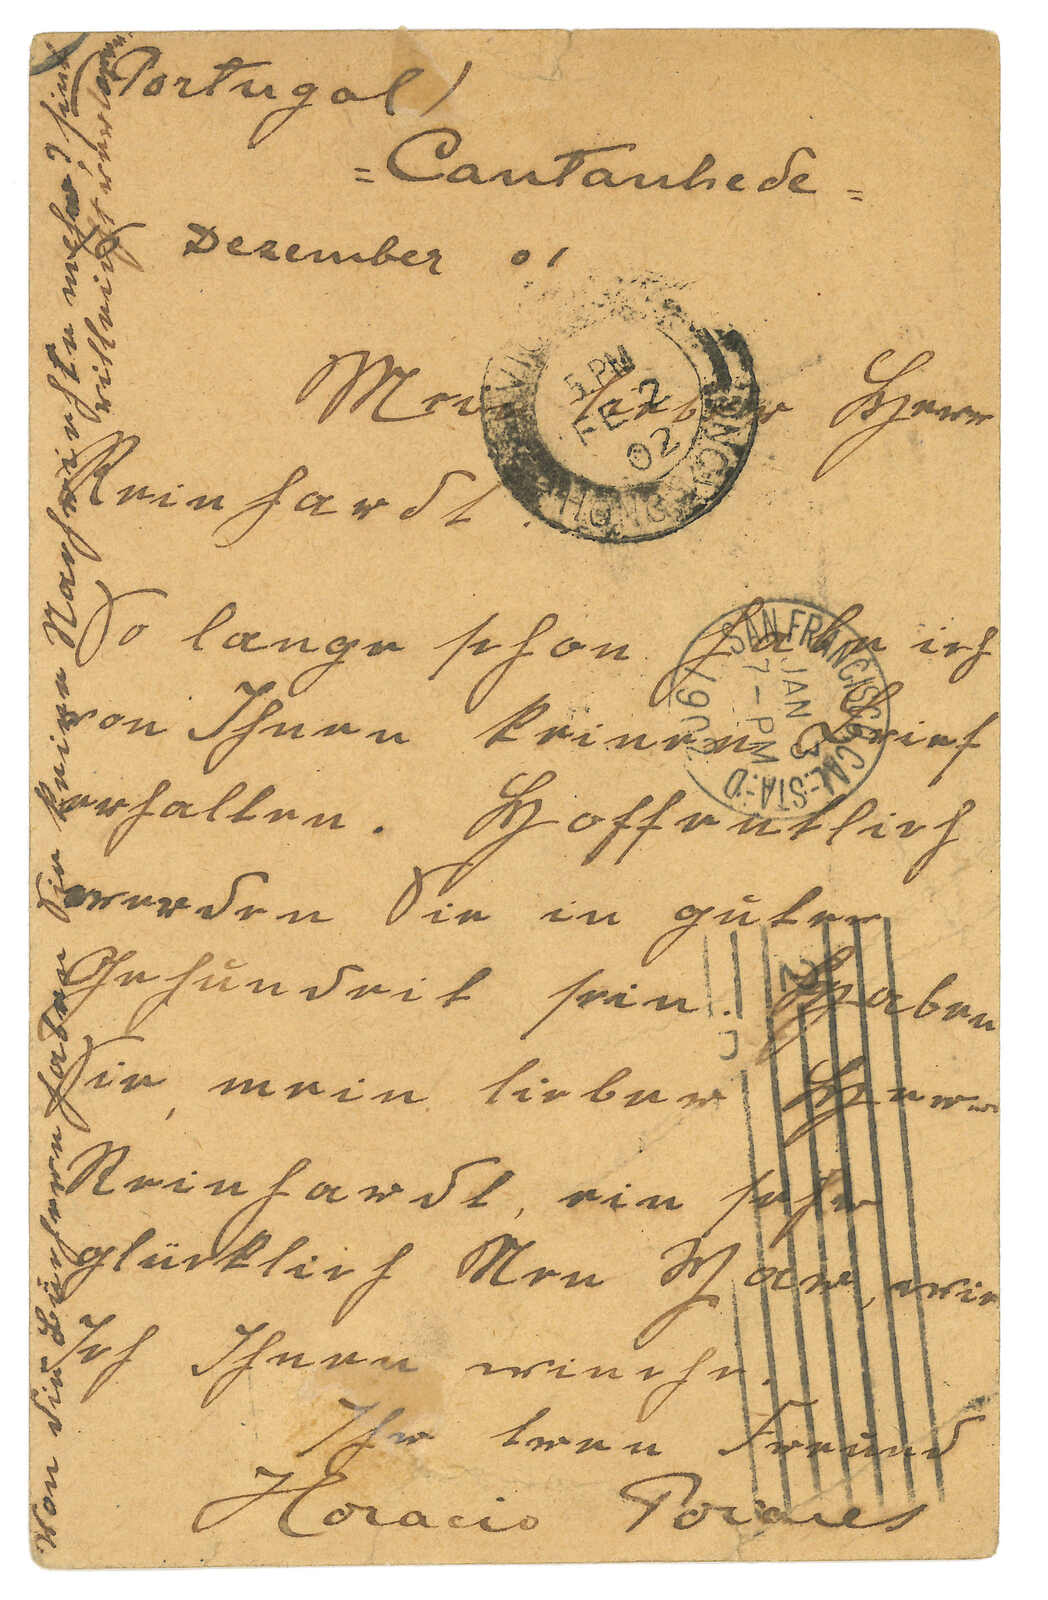 (Portugal)
= Cantanhede =
Dezember 01
Mein lieber Herr
Reinhardt.
So lange schon habe ich
von Ihnen keinen Brief
erhalten. Hoffentlich
werden Sie in guter
Gesundeit sein. Haben
Sie, mein lieber Herr
Reinhardt, ein sehr
glücklich Neu Har, wie
Ich Ihnen winche.
Ihr treu Freund
Horacio
Von die Büchern haben Sie keine Nachrichte mehr? sind
vielleicht
VIC
5 PM
FE 2
02
HONG KONG
SAN FRANCISCO, CAL. STA. D.
JAN 3
7 - PM
1902
2